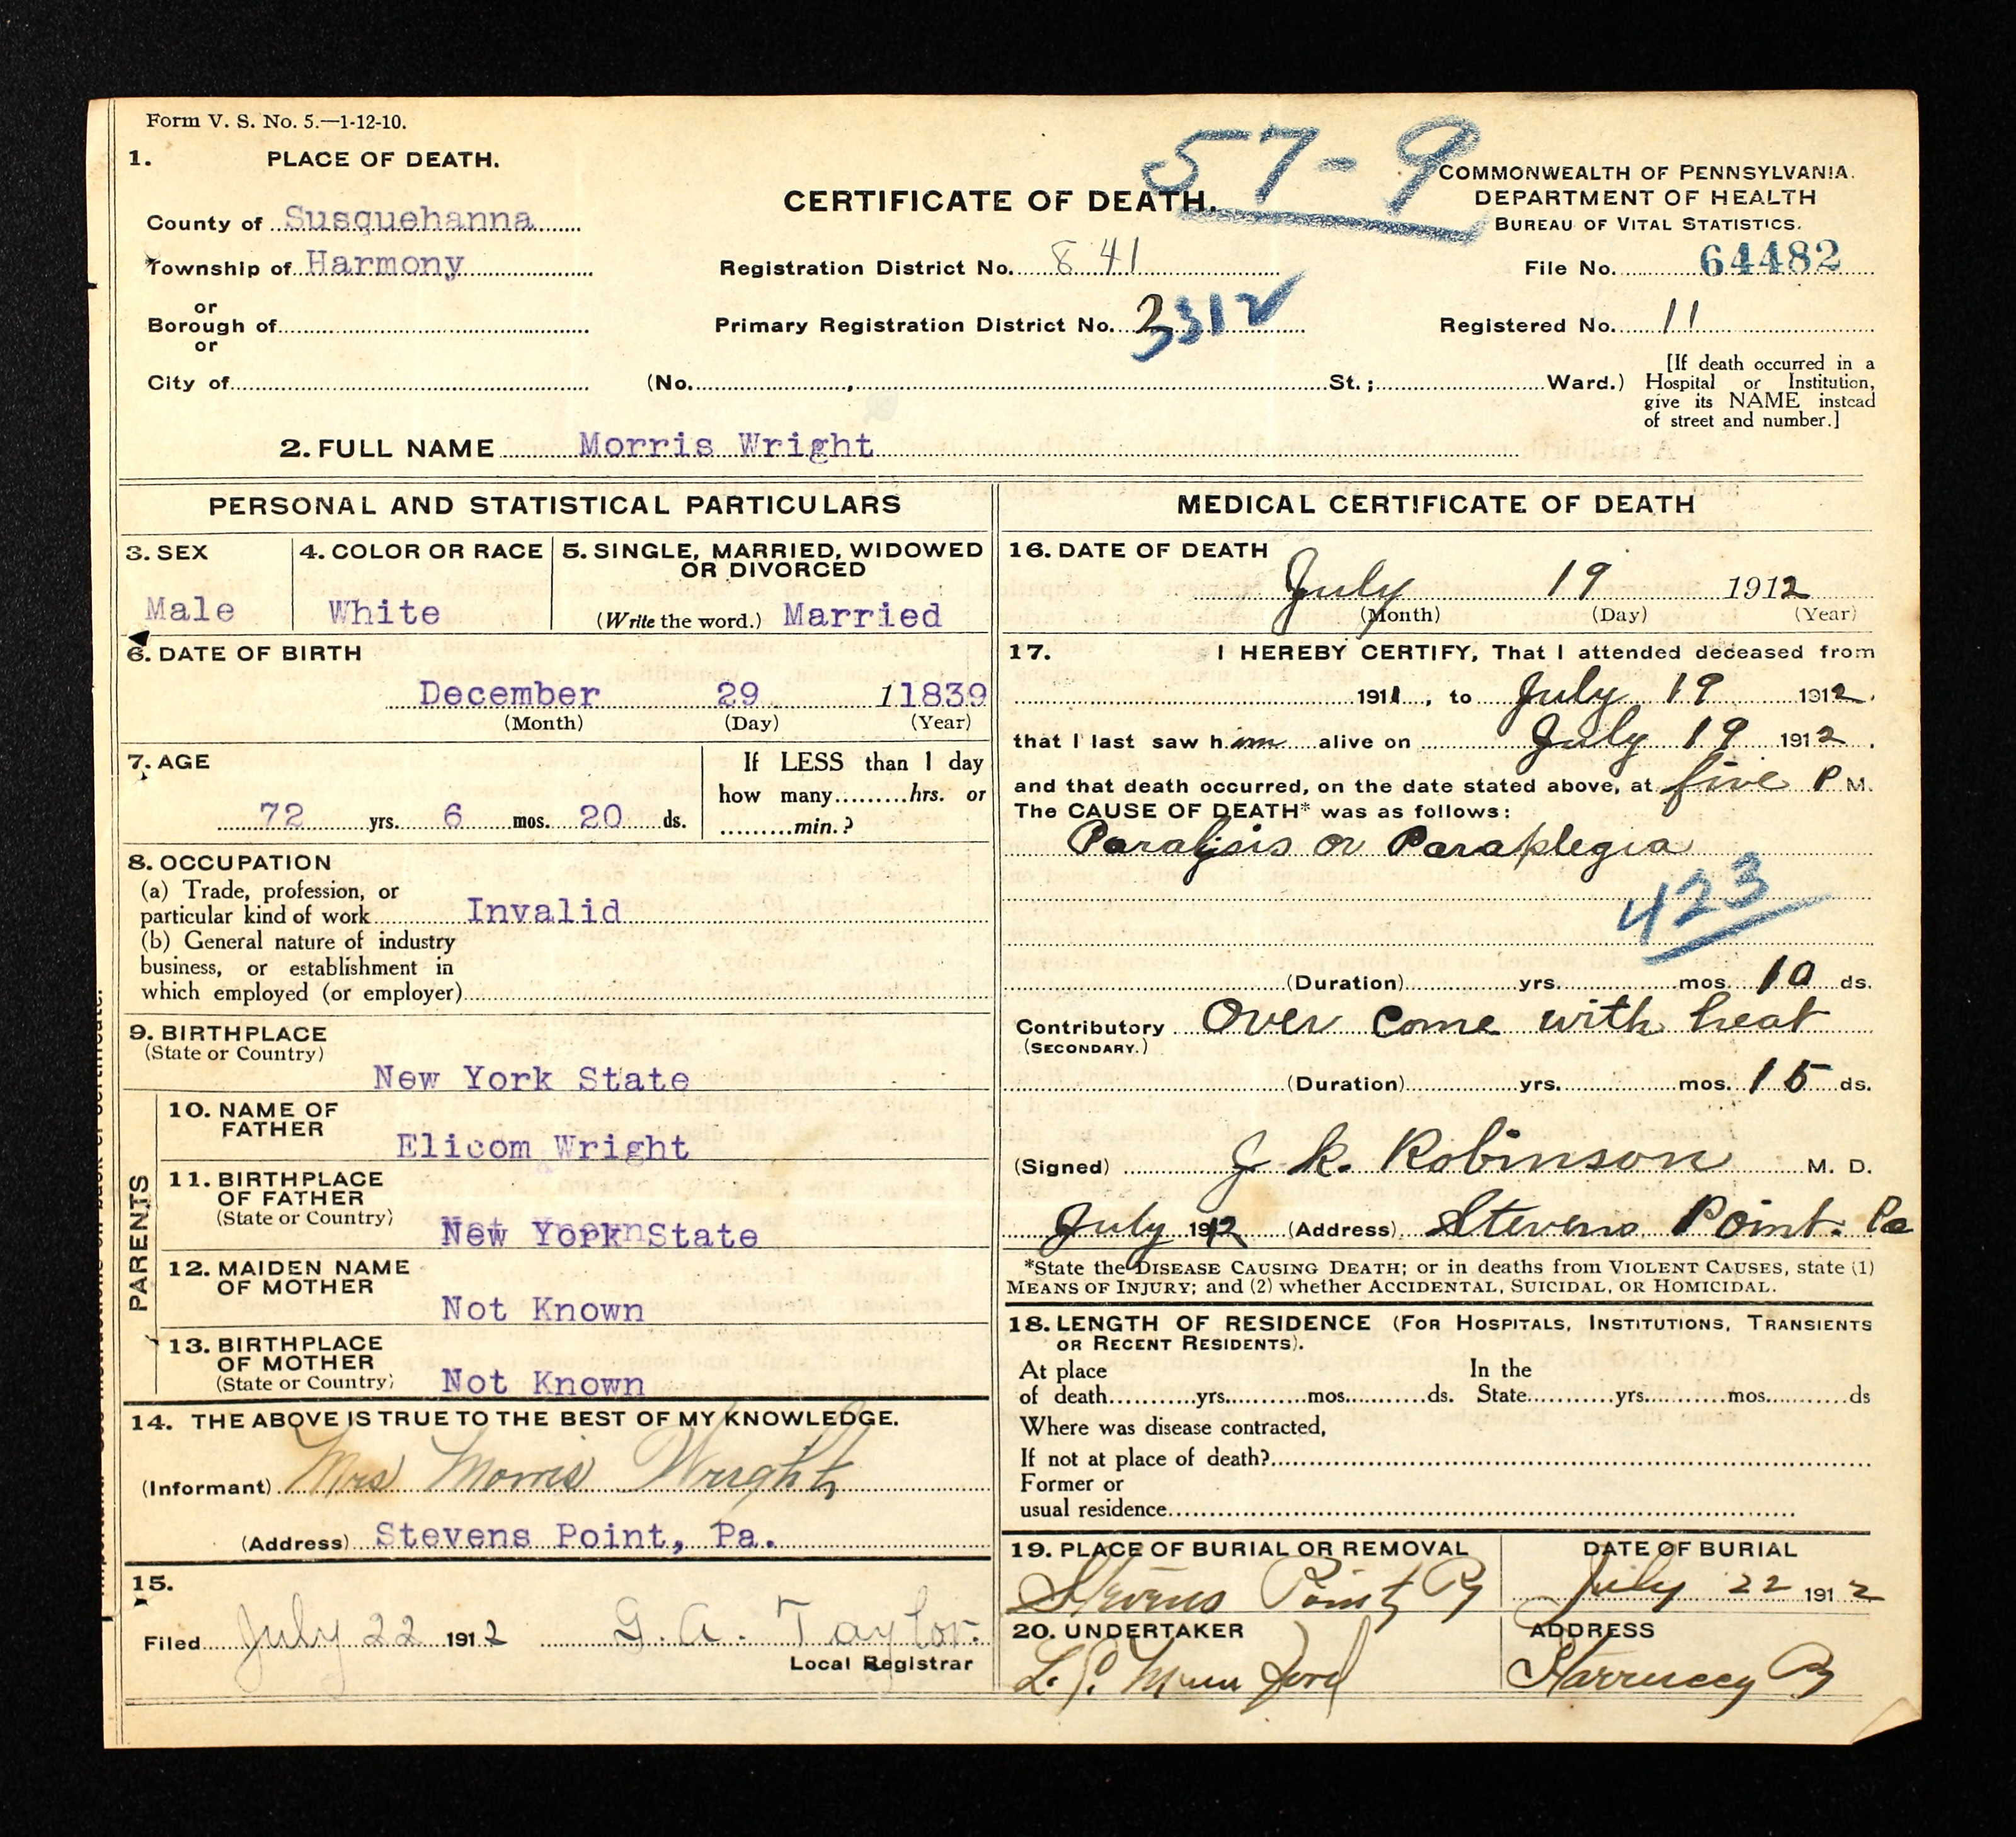 Form V. S. No. 5.—1-12-10.
57-9
1. PLACE OF DEATH.
CERTIFICATE OF DEATH.
COMMONWEALTH OF PENNSYLVANIA.
DEPARTMENT OF HEALTH
BUREAU OF VITAL STATISTICS.
County of Susquehanna
Township of Harmony
Registration District No. 841
File No. 64482
or
Borough of
Primary Registration District No. 3312
Registered No. 11
or
City of
(No. , St.; Ward.)
[If death occurred in a
Hospital or Institution,
give its NAME instead
of street and number.]
2. FULL NAME Morris Wright
PERSONAL AND STATISTICAL PARTICULARS
3. SEX
Male
4. COLOR OR RACE
White
5. SINGLE, MARRIED, WIDOWED
OR DIVORCED
(Write the word.) Married
6. DATE OF BIRTH
December 29 11839
(Month) (Day) (Year)
7. AGE
72 yrs. 6 mos. 20 ds.
If LESS than 1 day
how many hrs. or
min.?
8. OCCUPATION
(a) Trade, profession, or
particular kind of work Invalid
(b) General nature of industry
business, or establishment in
which employed (or employer)
9. BIRTHPLACE
(State or Country)
New York State
PARENTS
10. NAME OF
FATHER
Elicom Wright
11. BIRTHPLACE
OF FATHER
(State or Country)
New York State
12. MAIDEN NAME
OF MOTHER
Not Known
13. BIRTHPLACE
OF MOTHER
(State or Country)
Not Known
14. THE ABOVE IS TRUE TO THE BEST OF MY KNOWLEDGE.
(Informant) Mrs Morris Wright
(Address) Stevens Point, Pa.
15.
Filed July 22 1912 G. A. Taylor.
Local Registrar
MEDICAL CERTIFICATE OF DEATH
16. DATE OF DEATH
July 19 1912
(Month) (Day) (Year)
17. I HEREBY CERTIFY, That I attended deceased from
1911, to July 19 1912.
that I last saw him alive on July 19 1912.
and that death occurred, on the date stated above, at five P M.
The CAUSE OF DEATH* was as follows:
Paralysis or Paraplegia
423
(Duration) yrs. mos. 10 ds.
Contributory Over come with heat
(SECONDARY.)
(Duration) yrs. mos. 15 ds.
(Signed) J. K. Robinson M. D.
July 1912 (Address) Stevens Point. Pa
*State the DISEASE CAUSING DEATH; or in deaths from VIOLENT CAUSES, state (1)
MEANS OF INJURY; and (2) whether ACCIDENTAL, SUICIDAL, OR HOMICIDAL.
18. LENGTH OF RESIDENCE (FOR HOSPITALS, INSTITUTIONS, TRANSIENTS
OR RECENT RESIDENTS).
At place In the
of death yrs. mos. ds. State yrs. mos. ds
Where was disease contracted,
If not at place of death?
Former or
usual residence
19. PLACE OF BURIAL OR REMOVAL
Stevens Point Pa
DATE OF BURIAL
July 22 1912
20. UNDERTAKER
ADDRESS